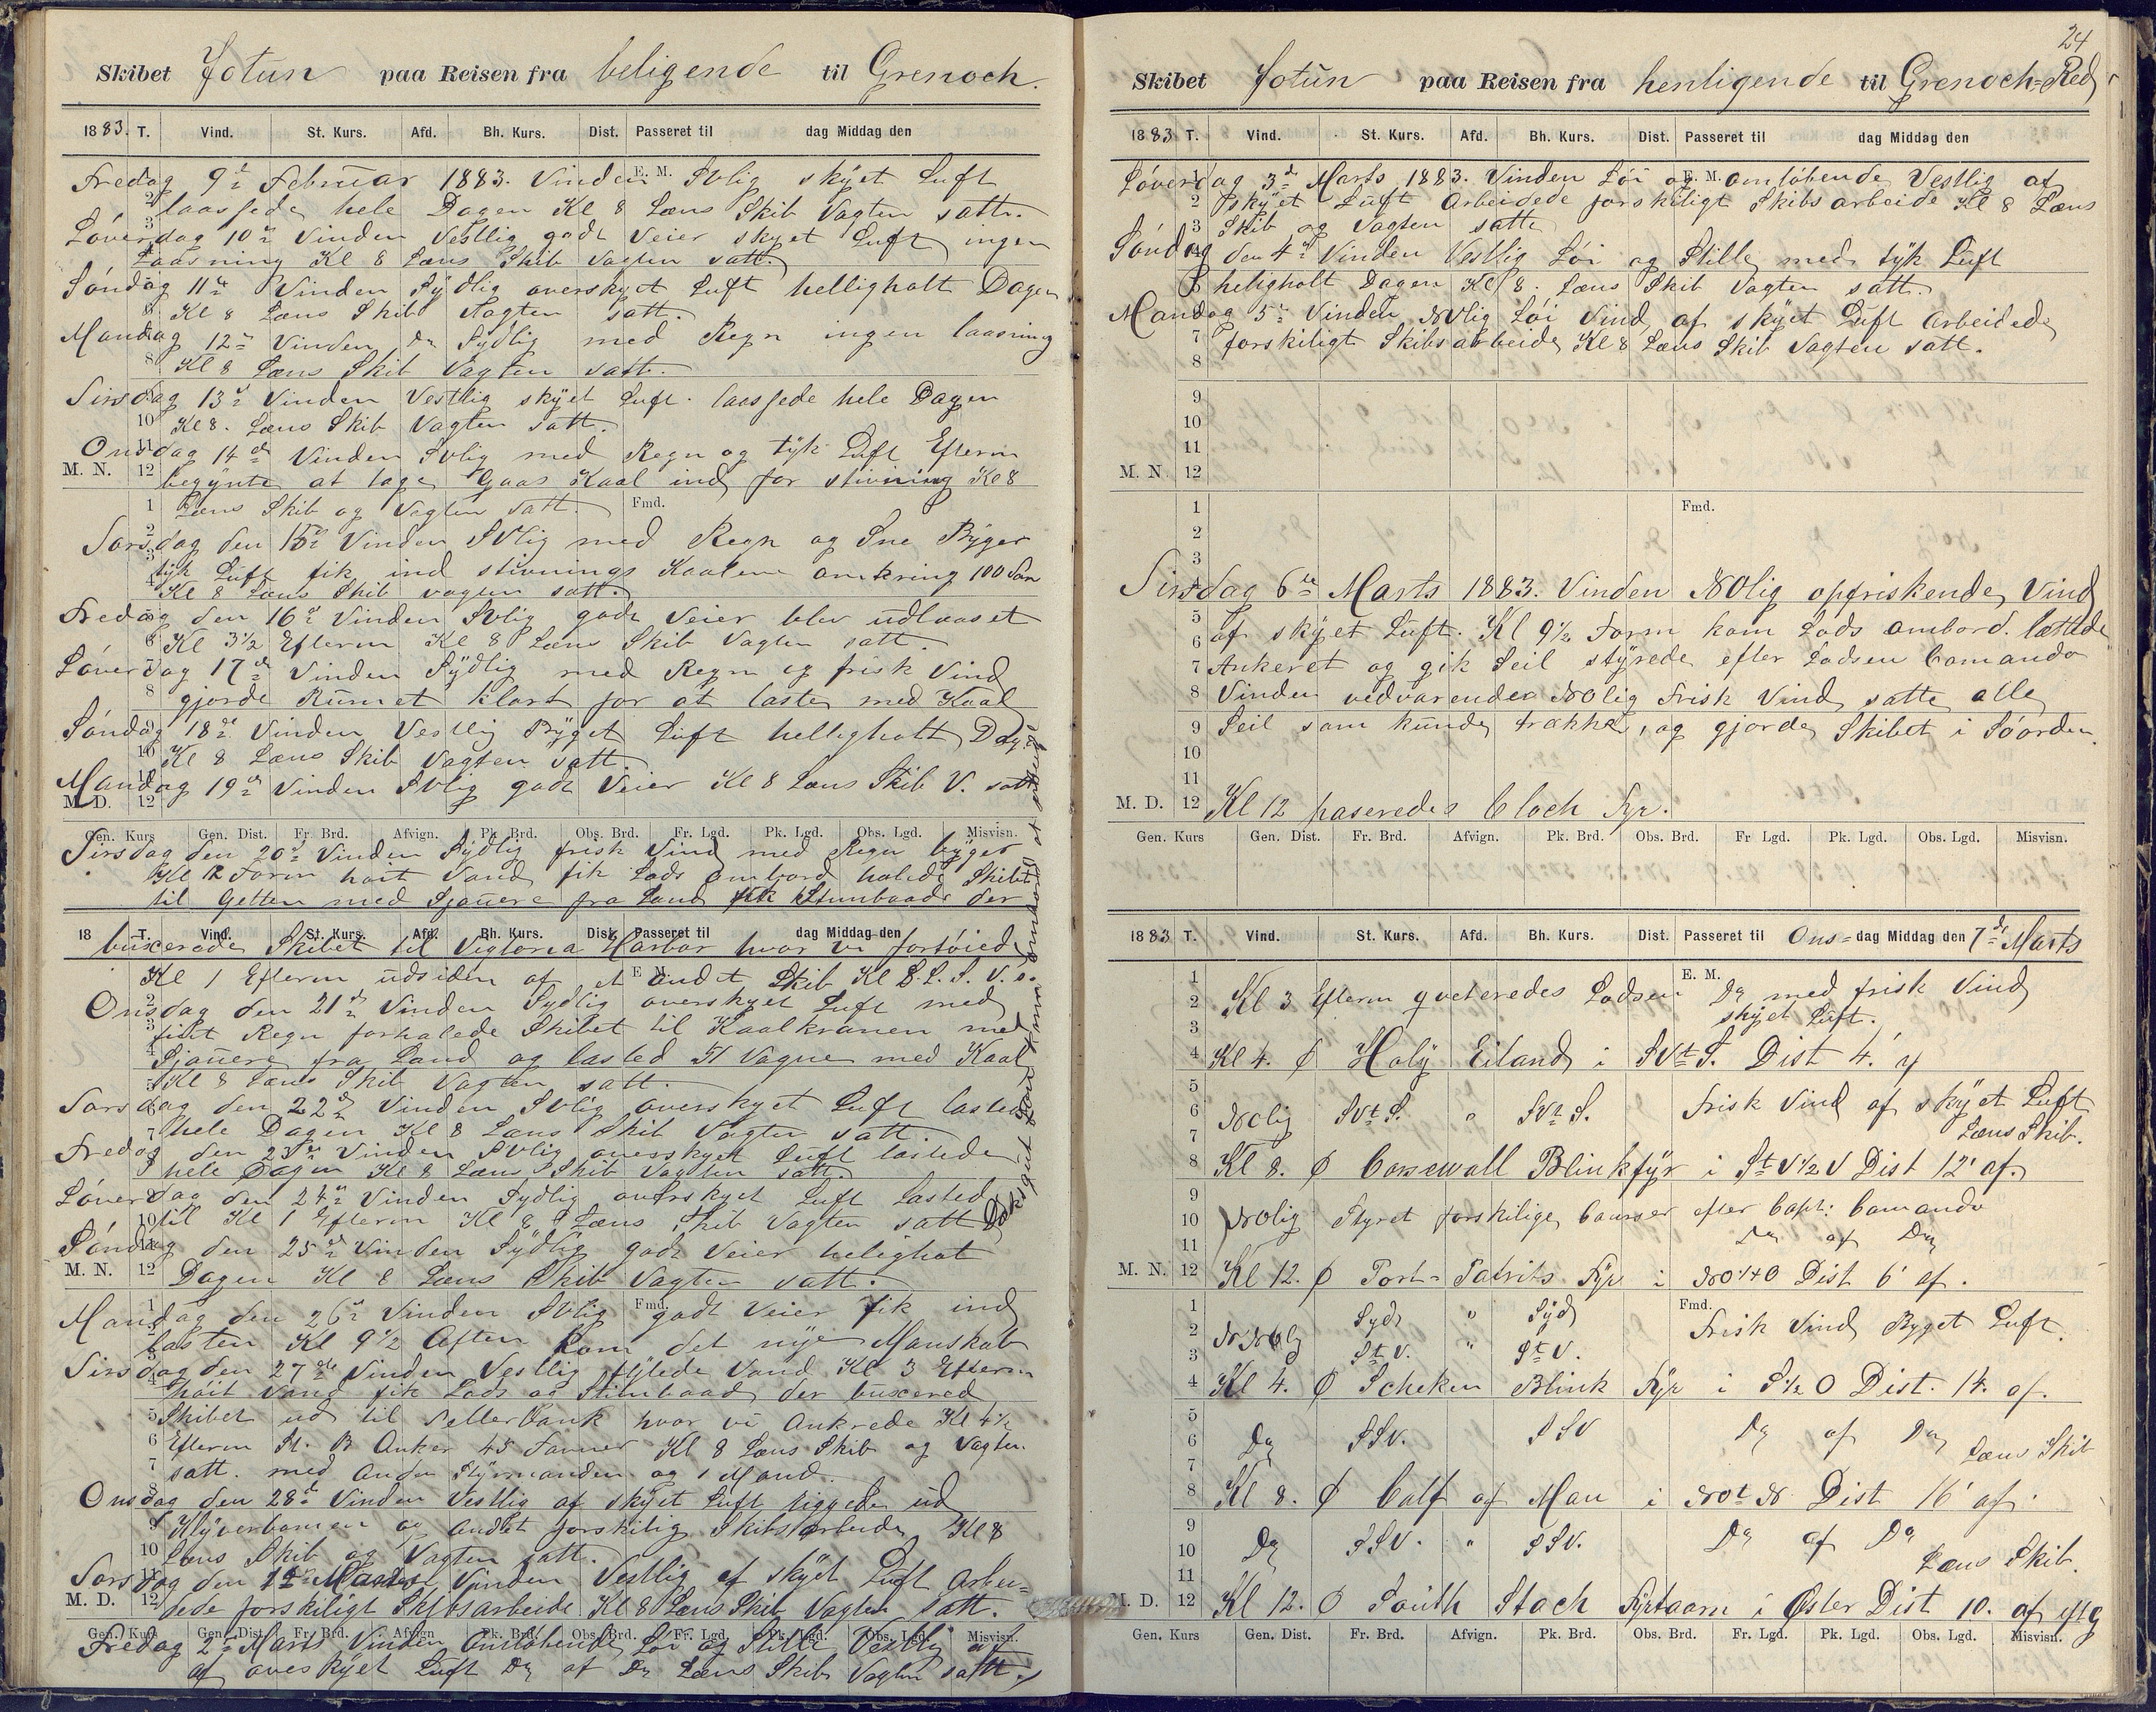 Skibet Jotun paa Reisen fra beligende til Grenoch.
1883. T. Vind. St. Kurs. Afd. Bh. Kurs. Dist. Passeret til dag Middag den
Fredag 9de Februar 1883. Vinden SVlig skyet Luft
E. M.
laassede hele Dagen Kl 8 Læns Skib Vagten satt.
Løverdag 10de Vinden Vestlig godt Veier skyet Luft ingen
Laasning Kl 8 Læns Skib Vagten satt.
Søndag 11te Vinden Sydlig overskyet Luft helligholt Dagen
Kl 8 Læns Skib Vagten satt.
Mandag 12te Vinden Do Sydlig med Regn ingen laasning
Kl 8 Læns Skib Vagten satt.
Tirsdag 13de Vinden Vestlig skyet Luft. laassede hele Dagen
Kl 8. Læns Skib Vagten satt.
Onsdag 14de Vinden SVlig med Regn og tyk Luft Efterm
M. N. 12 begynte at tage Gaas Kaal ind for stivning Kl 8
Læns Skib og Vagten satt.
Fmd.
Torsdag den 15de Vinden SVlig med Regn og Sne Byger
tyk Luft fik ind stivnings Kaalene omkring 100 Ton
Kl 8 Læns Skib vagten satt.
Fredag den 16de Vinden SVlig godt Veier blev udlaaset
Kl 3½ Efterm Kl 8 Læns Skib Vagten satt.
Løverdag 17de Vinden Sydlig med Regn og frisk Vind
gjorde Rumet klart for at laste med Kaal
Søndag 18de Vinden Vestlig Byget Luft helligholt Dagen
Kl 8 Læns Skib Vagten satt.
Mandag 19de Vinden SVlig godt Veier Kl 8 Læns Skib V. satt
M. D. 12
Gen. Kurs Gen. Dist. Fr. Brd. Afvign. Pk. Brd. Obs. Brd. Fr. Lgd. Pk. Lgd. Obs. Lgd. Misvisn.
Tirsdag den 20de Vinden Sydlig frisk Vind med Regn byger
Kl 12 Form høit Vand fik Lods ombord halede Skibet
til Getten med Sjauere fra Land fik Stimbaade der
18 T. Vind. St. Kurs. Afd. Bh. Kurs. Dist. Passeret til dag Middag den
buxerede Skibet til Vigtoria Harbor hvor vi fortøiede
Kl 1 Efterm udsiden af et andet Skib Kl 8 L. S. V. s.
E. M.
Onsdag den 21de Vinden Sydlig overskyet Luft med
fidt Regn forhalede Skibet til Kaalkranen med
Sjauere fra Land og lasted 51 Vogne med Kaal
Kl 8 Læns Skib Vagten satt.
Torsdag den 22de Vinden SVlig overskyet Luft lasted
hele Dagen Kl 8 Læns Skib Vagten satt.
Fredag den 23de Vinden SVlig overskyet Luft lastede
hele Dagen Kl 8 Læns Skib Vagten satt.
Løverdag den 24de Vinden Sydlig overskyet Luft Lasted
til Kl 1 Efterm Kl 8 Læns Skib Vagten satt
Søndag den 25de Vinden Sydlig godt Veier helighot
M. N. 12 Dagen Kl 8 Læns Skib Vagten satt.
Mandag den 26de Vinden SVlig godt Veier fik ind
Fmd.
lasten Kl 9½ Aften kom det nye Manskab
Tirsdag den 27de Vinden Vestlig fyldede Vand Kl 3 Efterm
høit Vand fik Lods og Stimbaad der buxered
Skibet ud til Tellerbank hvor vi Ankrede Kl 4½
Efterm St. B Anker 45 Favner Kl 8 Læns Skib og Vagten
satt. med Anden Styrmanden og 1 Mand.
Onsdag den 28de Vinden Vestlig af skyet Luft riggede ud
Klyverbommen og andet forskilig Skibsarbeide Kl 8
Læns Skib og Vagten satt.
Torsdag den 1ste Marts Vinden Vestlig af skyet Luft arbei=
M. D. 12 dede forskiligt Skibsarbeide Kl 8 Læns Skib Vagten satt.
Gen. Kurs Gen. Dist. Fr. Brd. Afvign Pk. Brd. Obs. Brd. Fr. Lgd. Pk. Lgd. Obs. Lgd. Misvisn.
Fredag 2de Marts Vinden Omløbende Løi og Stille Vestlig af
af oveskyet Luft Do af Do Læns Skib Vagten satt.
24
Skibet Jotun paa Reisen fra henligende til Grenoch=Red
1883 T. Vind. St. Kurs. Afd. Bh. Kurs. Dist. Passeret til dag Middag den
Løverdag 3de Marts 1883. Vinden Løi og omløbende Vestlig af
E. M.
2 skyet Luft Arbeidede forskiligt Skibsarbeide Kl 8 Læns
3 Skib og Vagten satte
Søndag den 4de Vinden Vestlig Løi og Stille med tyk Luft
heligholt Dagen Kl 8. Læns Skib Vagten satt.
Mandag 5te Vinden NVlig Løi Vind af skyet Luft Arbeidede
7 forskiligt Skibsarbeide Kl 8 Læns Skib Vagten satt.
8
9
10
11
M. N. 12
1 Fmd.
2
3
Tirsdag 6te Marts 1883. Vinden NOlig opfriskende Vind
5 af skyet Luft. Kl 9½ Form kom Lods ombord. lættede
6
7 Ankeret og gik Seil styrede efter Lodsen Comando
8 Vinden vedvarende NOlig Frisk Vind satte alle
9 Seil som kunde trække, og gjorde Skibet i Søorden.
10
11
M. D. 12 Kl 12 paseredes Cloch Fyr.
Gen. Kurs Gen. Dist. Fr. Brd. Afvign. Pk. Brd. Obs. Brd. Fr Lgd. Pk. Lgd. Obs. Lgd. Misvisn.
1883 T. Vind. St. Kurs. Afd. Bh. Kurs. Dist. Passeret til Ons=dag Middag den 7de Marts
1 E. M.
2 Kl 3 Efterm qveteredes Lodsen Do med frisk Vind
3 skyet Luft.
4 Kl 4. Holy Eiland i SVtS. Dist 4.' af
5
6 NOlig SVtS. " SVtS. Frisk Vind af skyet Luft
7 Læns Skib.
8 Kl 8. Corsewall Blinkfyr i StV½V Dist 12' af.
9
10 NOlig Styret forskilige Courser efter Capt: Comando
11 Do af Do
M. N. 12 Kl 12. Port=Patriks Fyr i NO¼O Dist 6' af.
1 Syd " Syd Fmd.
2 NNOlig Frisk Vind Byget Luft.
3 StV. " StV.
4 Kl 4. Scheken Blink Fyr i S½O Dist. 14. af.
5
6 Do SSV. SSV Do af Do Læns Skib
7
8 Kl 8. Calf of Man i NOtN Dist 16' af.
9
10 Do SSV. " SSV. Do af Do
11 Læns Skib.
M. D. 12 Kl 12. South Stach Fyrtaarn i Øster Dist 10. af
Gen. Kurs Gen. Dist. Fr. Brd. Afvign. Pk. Brd. Obs. Brd. Fr. Lgd. Pk. Lgd. Obs. Lgd. Misvisn.